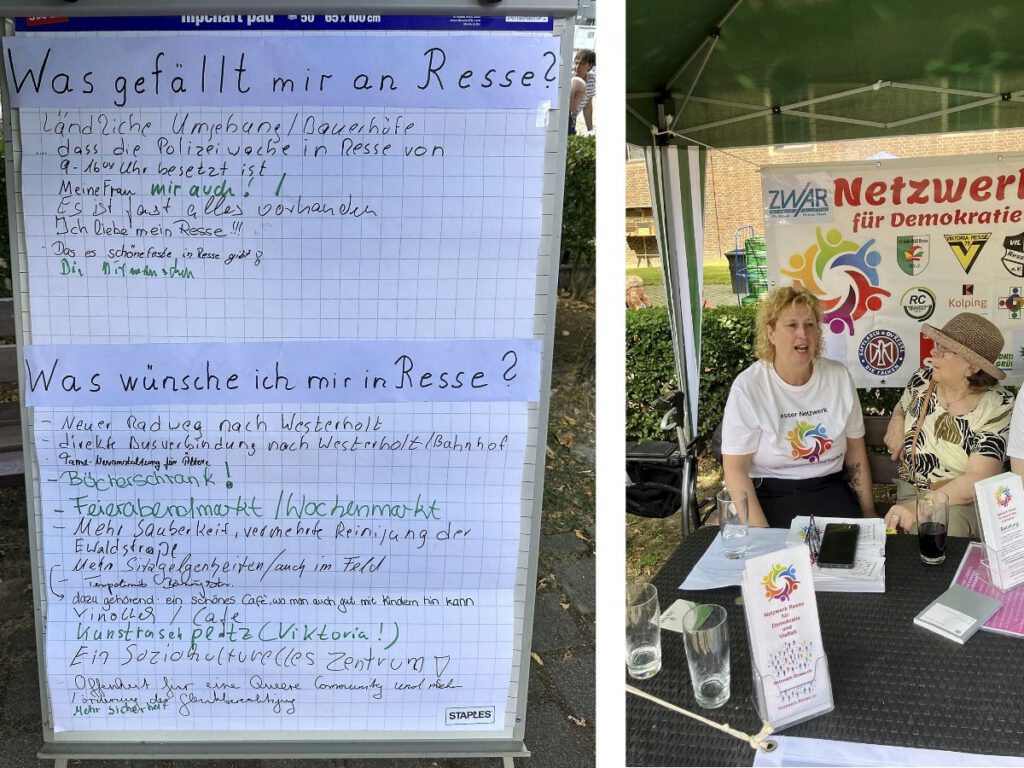 flipchart pad = 50 65 x 100 cm
Was gefällt mir an Resse?
Ländliche Umgebung/Bauerhöfe
dass die Polizeiwache in Resse von
9-16 00 Uhr besetzt ist
Meine Frau mir auch! !
Es ist fast alles vorhanden
Ich liebe mein Resse!!!
- Das es schöne Feste in Resse gibt!
Die
Was wünsche ich mir in Resse?
- Neuer Radweg nach Westerholt
- direkte Busverbindung nach Westerholt/Bahnhof
für Ältere
- Bücherschrank!
- Feierabendmarkt/Wochenmarkt
- Mehr Sauberkeit, vermehrte Reinigung der
Ewaldstraße
Mehr Sitzgelegenheiten/auch im Feld
- Tempolimit
dazu gehörend: ein schönes Café, wo man auch gut mit Kindern hin kann
Vinothek / Café
Kunstrasenplatz (Viktoria!)
Ein Soziokulturelles Zentrum!
- Offenheit für eine Queere Community und mehr
Förderung der Gleichberechtigung
Mehr Sicherheit
STAPLES
ZWAR
Netzwerk
für Demokratie
VIKTORIA RESSE
VfL
Resse
e.V.
RC
Kolping
DIE FALKEN
esser Netzwerk
Netzwerk Resse
für
Demokratie
und
Vielfalt
Netzwerk-Resse.de